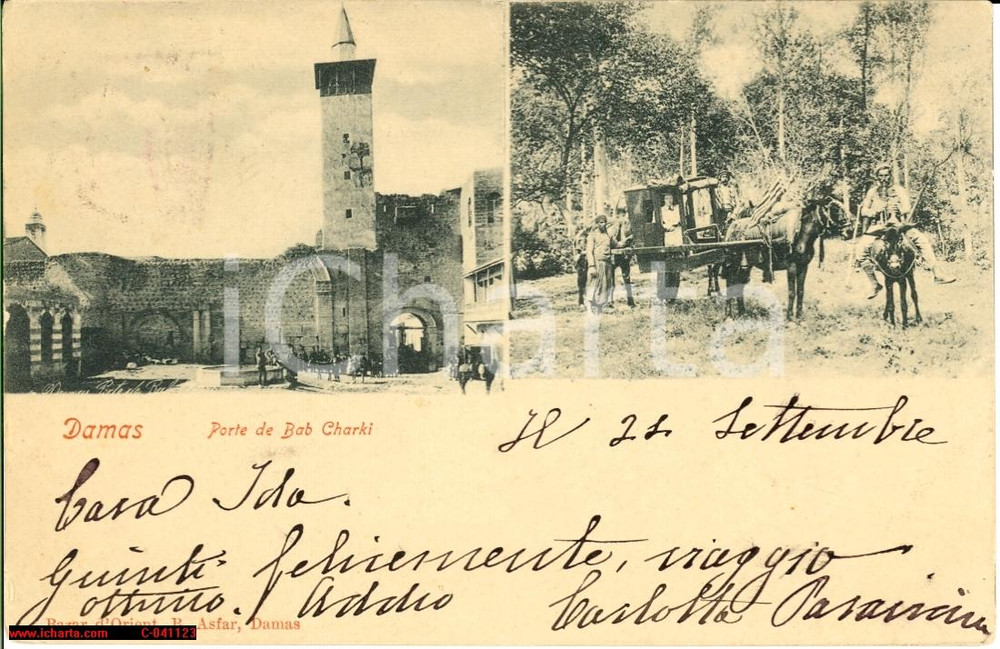 Damas
Porte de Bab Charki
Il 21 Settembre
Cara Ida.
Giunti felicemente, viaggio
ottimo. Addio
Carlotta
Bazar d'Orient, B. Asfar, Damas
www.icharta.com C-041123
iCharta